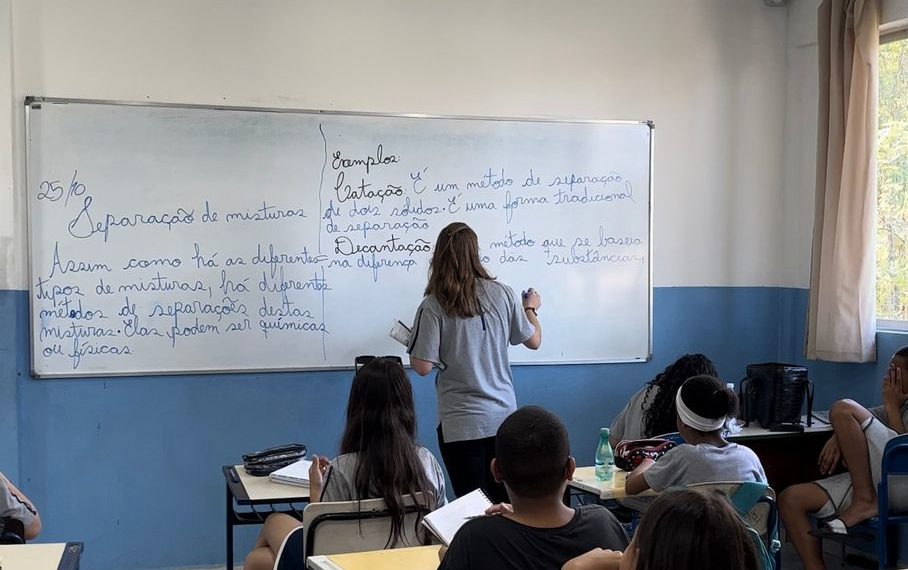 25/10
Separação de misturas
Assim como há as diferentes
tipos de misturas, há diferentes
métodos de separações destas
misturas. Elas podem ser químicas
ou físicas
Exemplos:
Catação: É um metodo de separação
de dois sólidos. É uma forma tradicional
de separação
Decantação método que se baseia
na diferença das substâncias,